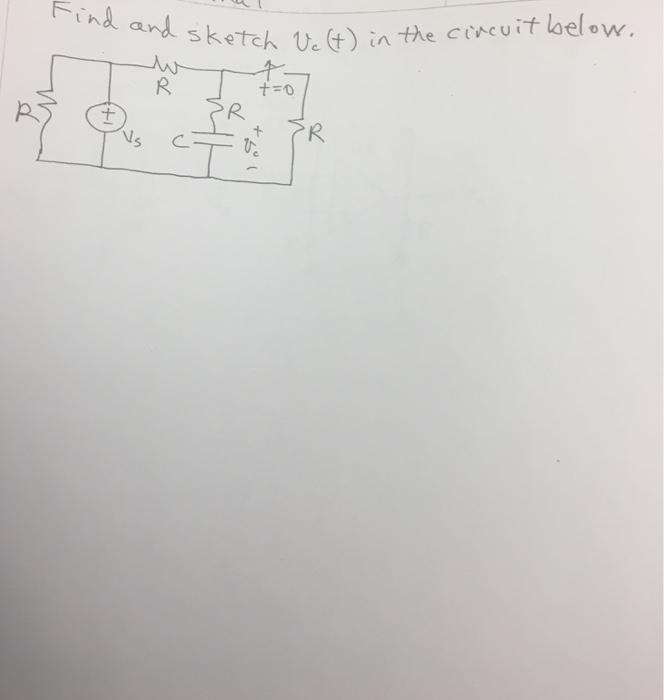 Find and sketch Vc(t) in the circuit below.
R
t=0
R
R
+
-
Vs
C
+
Vc
-
R